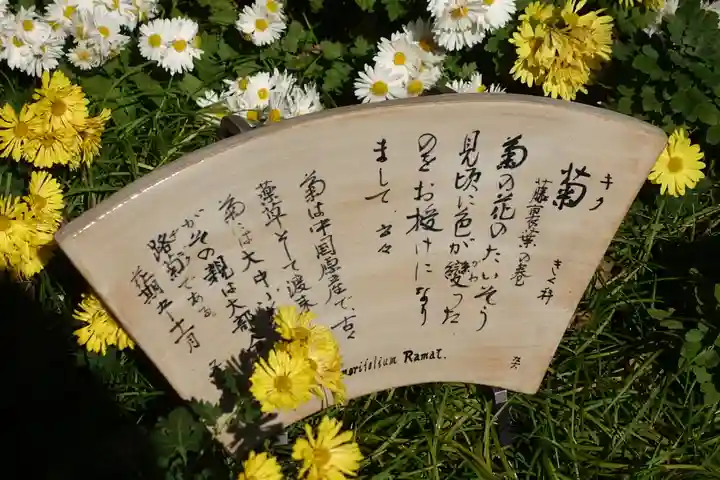 キク
菊
藤裏葉の巻
きく科
菊の花のたいそう
見頃に色が変った
かわ
のをお授けになり
まして 云々
菊は中国原産で古く
薬草として渡来
菊には大中小
がその親は大部分
路菊である。
花期九～十一月
morifolium Ramat.